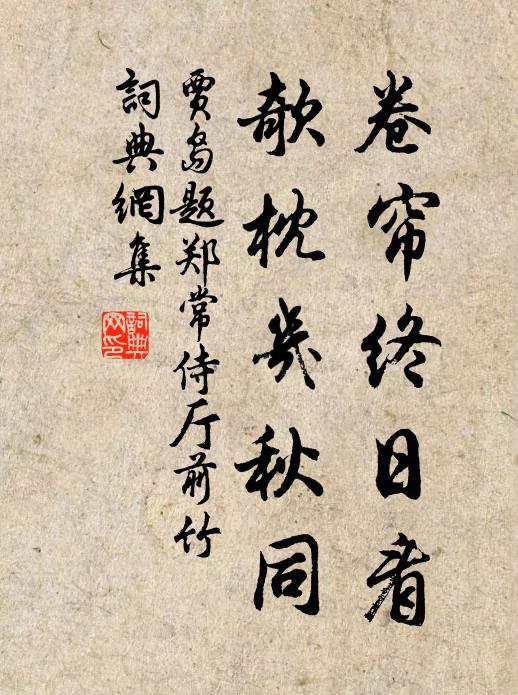 卷帘终日看
欹枕几秋同
贾岛题郑常侍厅前竹
詞典網集
詞典网印